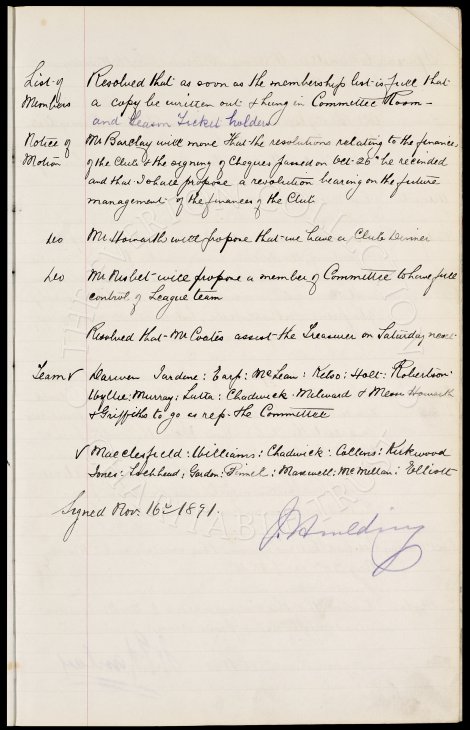 List of Resolved that as soon as the membership list is full that
Members a copy be written out & hung in Committee Room -
and Season Ticket holders
Notice of Mr Barclay will move that the resolutions relating to the finances
Motion of the Club & the signing of Cheques passed on Oct 26th be recinded
and that I shall propose a resolution bearing on the future
management of the finances of the Club
do Mr Howarth will propose that we have a Club Dinner
do Mr Nisbet will propose a member of Committee to have full
control of League team
Resolved that Mr Coates assist the Treasurer on Saturday next
Team v Darwen Jardine: Earp: McLean: Kelso: Holt: Robertson
Wyllie: Murray: Latta: Chadwick: Milward & Messrs Howarth
& Griffiths to go as rep. the Committee
v Macclesfield: Williams: Chadwick: Collins: Kirkwood
Jones: Lochhead: Gordon: Pinnel: Maxwell: McMillan: Elliott
Signed Nov. 16th 1891.
J. Houlding